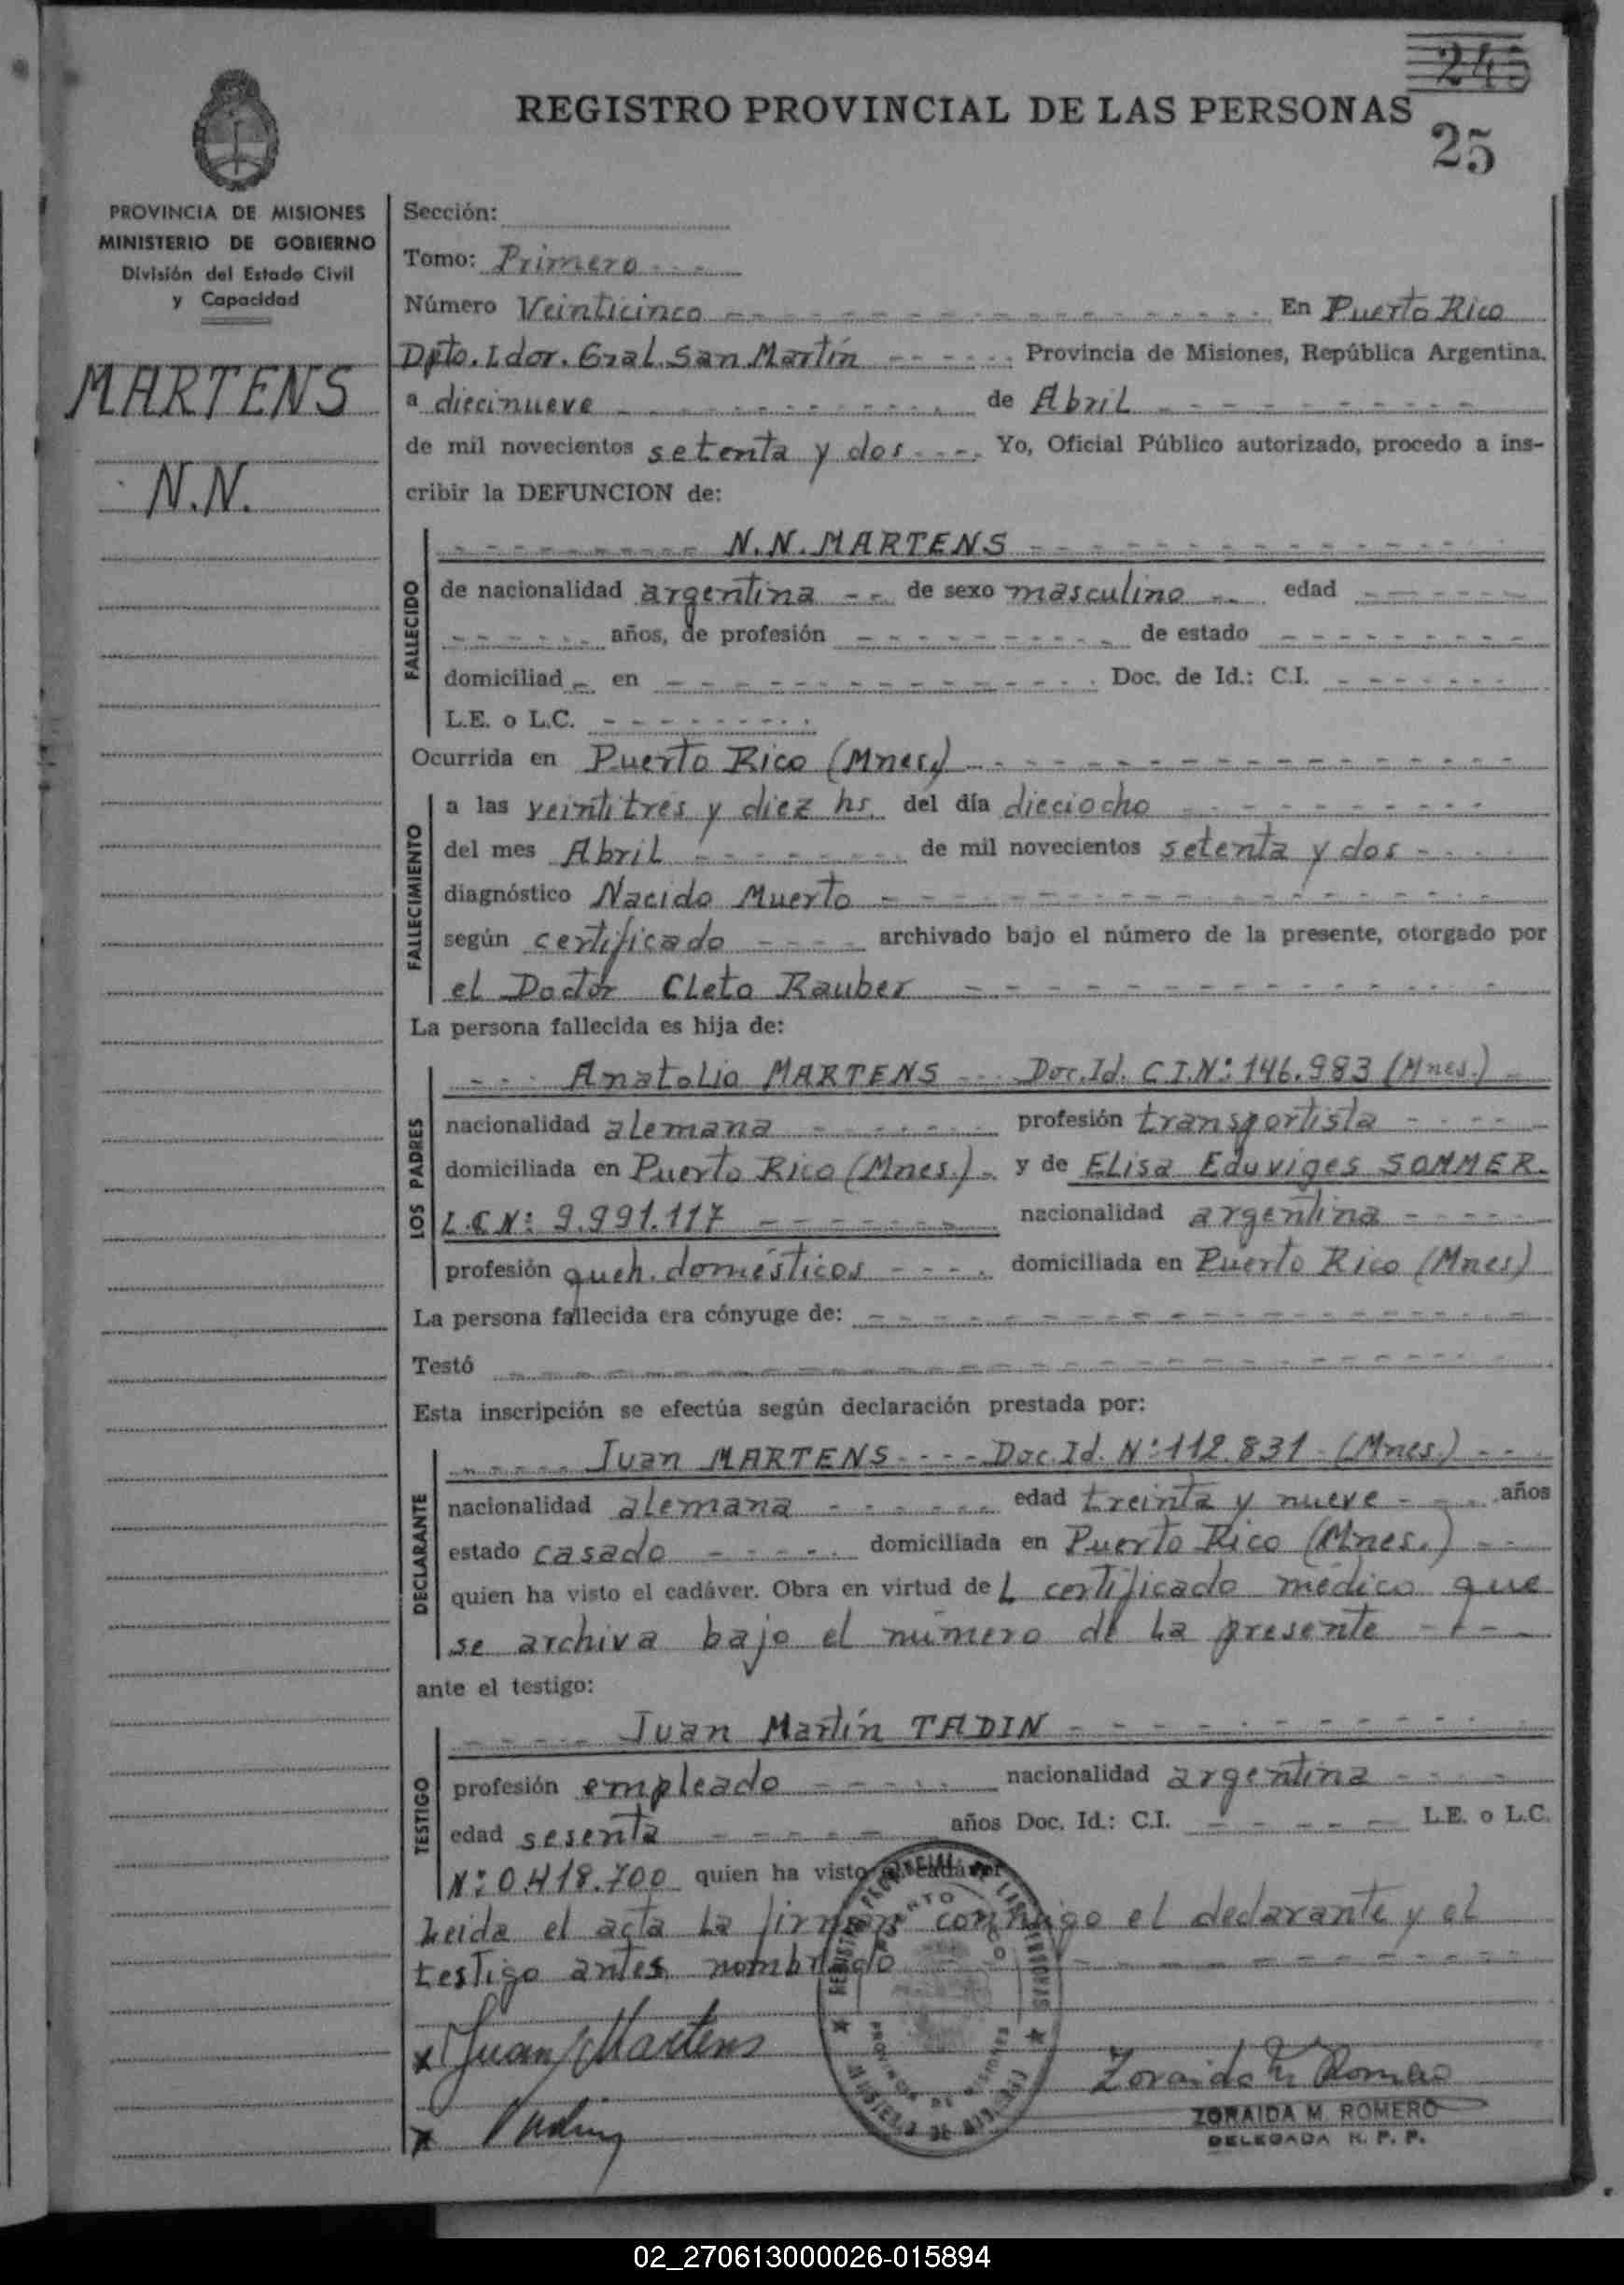 245
REGISTRO PROVINCIAL DE LAS PERSONAS
25
PROVINCIA DE MISIONES
MINISTERIO DE GOBIERNO
División del Estado Civil
y Capacidad
MARTENS
N.N.
Sección:
Tomo: Primero
Número Veinticinco En Puerto Rico
Dpto. Ldor. Gral. San Martín Provincia de Misiones, República Argentina,
a diecinueve de Abril
de mil novecientos setenta y dos Yo, Oficial Público autorizado, procedo a ins-
cribir la DEFUNCION de:
N.N. MARTENS
FALLECIDO
de nacionalidad argentina de sexo masculino edad
años, de profesión de estado
domiciliad en Doc. de Id.: C.I.
L.E. o L.C.
Ocurrida en Puerto Rico (Mnes.)
FALLECIMIENTO
a las veintitres y diez hs. del día dieciocho
del mes Abril de mil novecientos setenta y dos
diagnóstico Nacido Muerto
según certificado archivado bajo el número de la presente, otorgado por
el Doctor Cleto Rauber
La persona fallecida es hija de:
LOS PADRES
Anatolio MARTENS Doc. Id. C.I.Nº: 146.983 (Mnes.)
nacionalidad alemana profesión transportista
domiciliada en Puerto Rico (Mnes.) y de Elisa Eduviges SOMMER.
L.C Nº: 9.991.117 nacionalidad argentina
profesión queh. domésticos domiciliada en Puerto Rico (Mnes)
La persona fallecida era cónyuge de:
Testó
Esta inscripción se efectúa según declaración prestada por:
DECLARANTE
Juan MARTENS Doc. Id. Nº: 112.831 (Mnes.)
nacionalidad alemana edad treinta y nueve años
estado casado domiciliada en Puerto Rico (Mnes.)
quien ha visto el cadáver. Obra en virtud de L certificado médico que
se archiva bajo el número de la presente
ante el testigo:
TESTIGO
Juan Martín TADIN
profesión empleado nacionalidad argentina
edad sesenta años Doc. Id.: C.I. L.E. o L.C.
Nº: 0.418.700 quien ha visto el cadáver
Leida el acta la firman conmigo el declarante y el
testigo antes nombrado
x Juan Martens
x Tadin
Zoraida M Romero
ZORAIDA M. ROMERO
DELEGADA R. P. P.
02_270613000026-015894